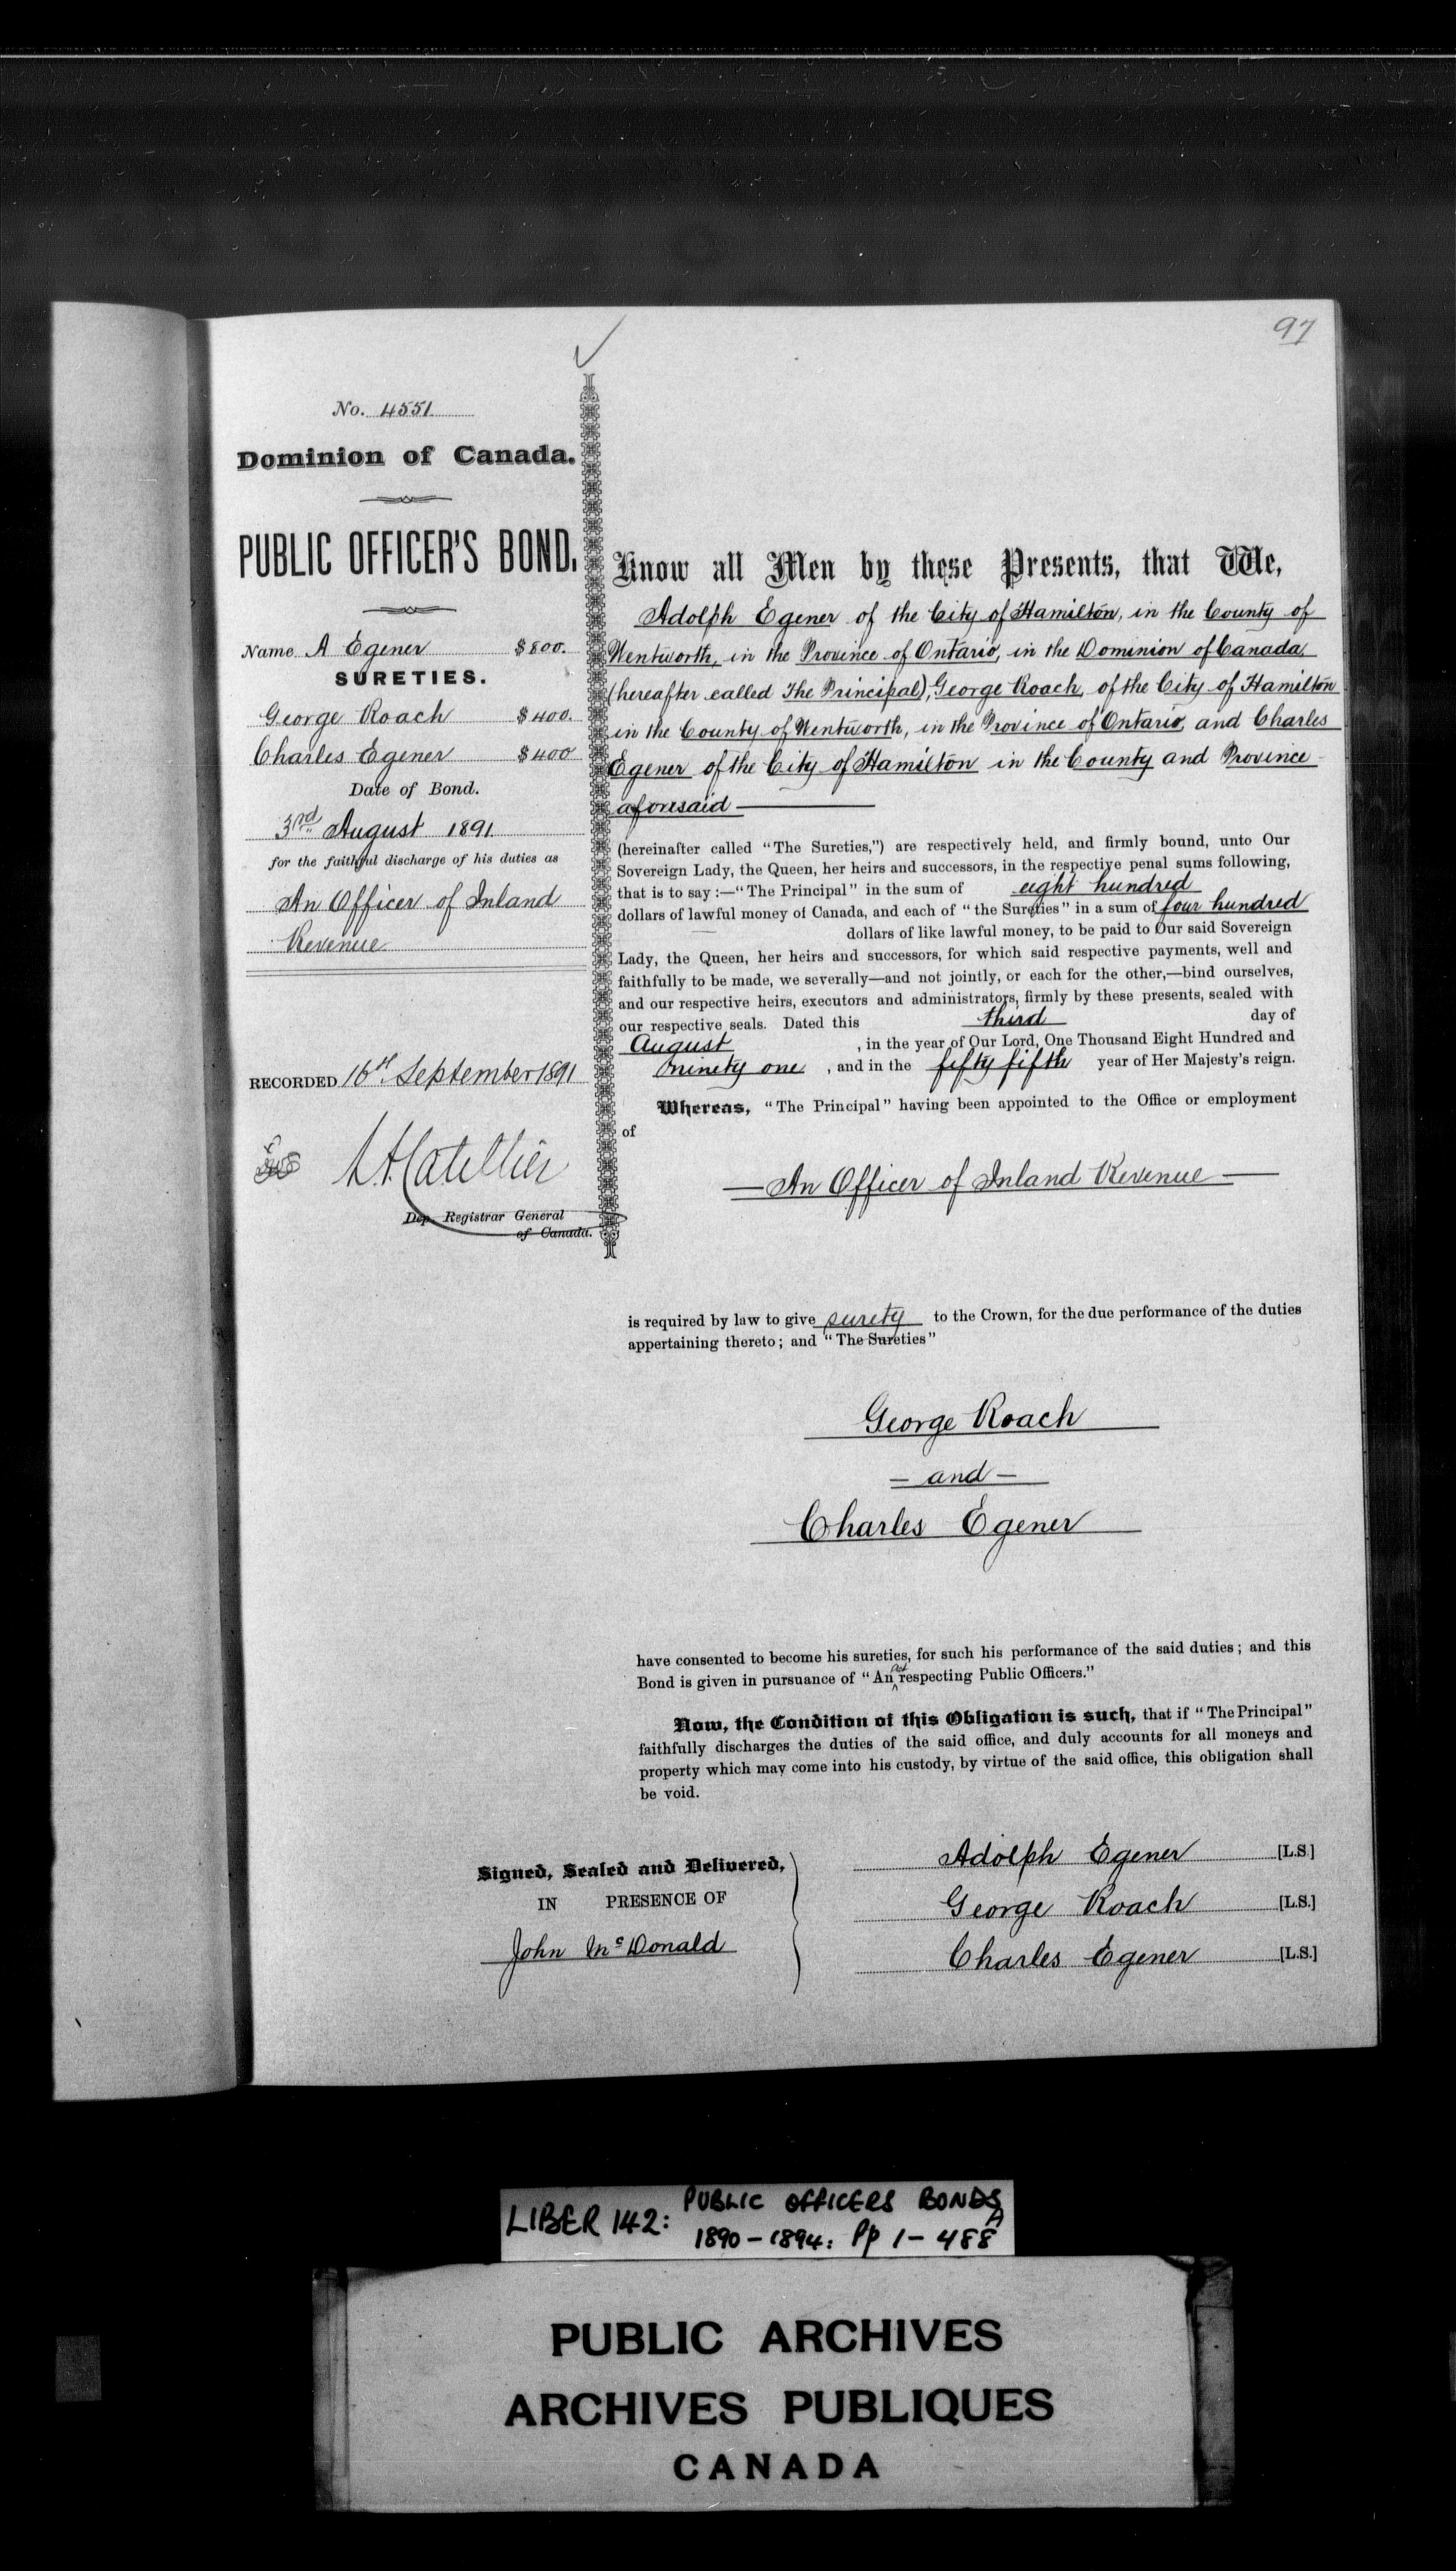 97
No. 4551
Dominion of Canada.
PUBLIC OFFICER'S BOND.
Name A Egener $800.
SURETIES.
George Roach $400.
Charles Egener $400
Date of Bond.
3rd August 1891.
for the faithful discharge of his duties as
An Officer of Inland
Revenue
RECORDED 16th September 1891
L A Catellier
Dep. Registrar General
of Canada.
Know all Men by these Presents, that We,
Adolph Egener of the City of Hamilton, in the County of
Wentworth, in the Province of Ontario, in the Dominion of Canada,
(hereafter called The Principal), George Roach, of the City of Hamilton
in the County of Wentworth, in the Province of Ontario, and Charles
Egener of the City of Hamilton in the County and Province
aforesaid
(hereinafter called "The Sureties,") are respectively held, and firmly bound, unto Our
Sovereign Lady, the Queen, her heirs and successors, in the respective penal sums following,
that is to say :—"The Principal" in the sum of eight hundred
dollars of lawful money of Canada, and each of "the Sureties" in a sum of four hundred
dollars of like lawful money, to be paid to Our said Sovereign
Lady, the Queen, her heirs and successors, for which said respective payments, well and
faithfully to be made, we severally—and not jointly, or each for the other,—bind ourselves,
and our respective heirs, executors and administrators, firmly by these presents, sealed with
our respective seals. Dated this third day of
August , in the year of Our Lord, One Thousand Eight Hundred and
ninety one , and in the fifty fifth year of Her Majesty's reign.
Whereas, "The Principal" having been appointed to the Office or employment
of
— An Officer of Inland Revenue —
is required by law to give surety to the Crown, for the due performance of the duties
appertaining thereto; and "The Sureties"
George Roach
— and —
Charles Egener
have consented to become his sureties, for such his performance of the said duties; and this
Bond is given in pursuance of "An Act respecting Public Officers."
Now, the Condition of this Obligation is such, that if "The Principal"
faithfully discharges the duties of the said office, and duly accounts for all moneys and
property which may come into his custody, by virtue of the said office, this obligation shall
be void.
Signed, Sealed and Delivered,
IN PRESENCE OF
John McDonald
Adolph Egener [L.S.]
George Roach [L.S.]
Charles Egener [L.S.]
LIBER 142: PUBLIC OFFICERS BONDS
1890-1894: Pp 1-488A
PUBLIC ARCHIVES
ARCHIVES PUBLIQUES
CANADA